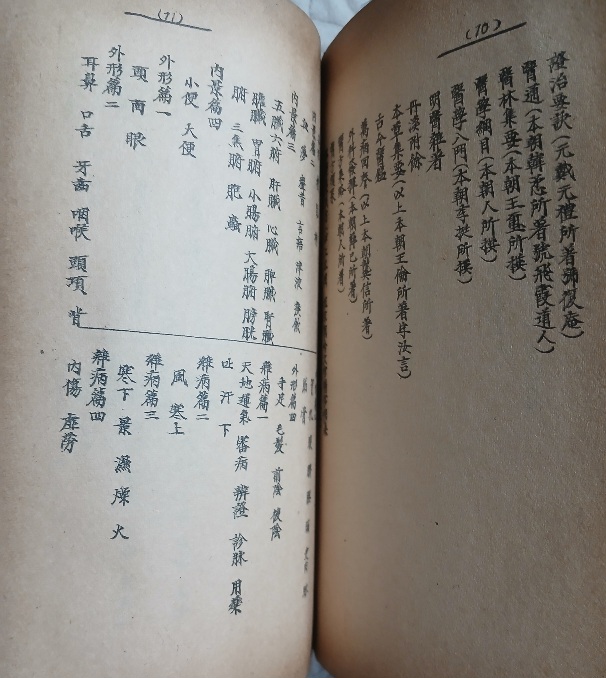 (10)
證治要訣(元戴元禮所著號復庵)
醫通(本朝韓悉所著號飛霞道人)
醫林集要(本朝王璽所撰)
醫學綱目(本朝人所撰)
醫學入門(本朝李梴所撰)
明醫雜著
丹溪附餘
本草集要(以上本朝王倫所著字汝言)
古今醫鑑
萬病回春(以上本朝龔信所著)
外科發揮(本朝薛己所著)
(11)
內景篇二
聲音 言語 津液 痰飮
內景篇三
五臟六腑 肝臟 心臟 脾臟 腎臟
膽腑 胃腑 小腸腑 大腸腑 膀胱
腑 三焦腑 胞 蟲
內景篇四
小便 大便
外形篇一
頭 面 眼
外形篇二
耳鼻 口舌 牙齒 咽喉 頸項 背
外形篇四
手 足 毛髮 前陰 後陰
雜病篇一
天地運氣 審病 辨證 診脉 用藥
吐 汗 下
雜病篇二
風 寒上
雜病篇三
寒下 暑 濕 燥 火
雜病篇四
內傷 虛勞